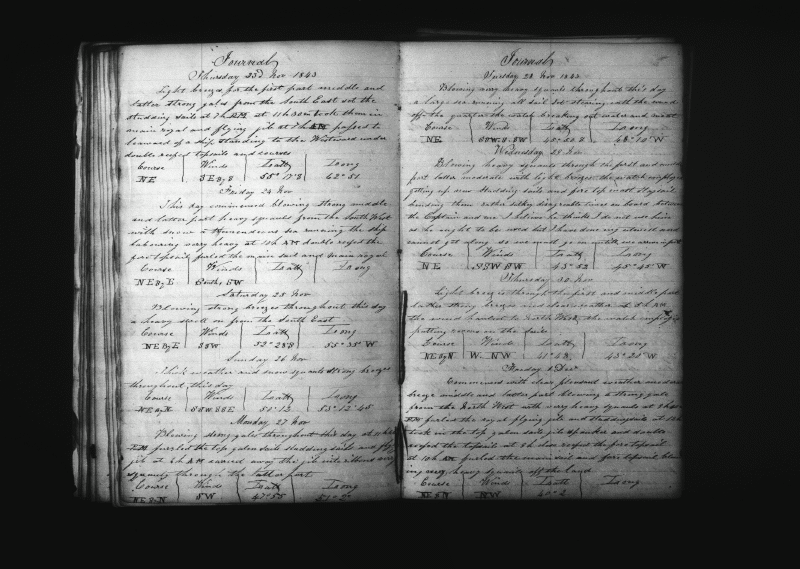 Journal
Thursday 23d Nov 1843
Light breezes for the first part middle and
latter strong gales from the South East set the
studding sails at 7h AM at 11h 30m took them in
main royal and flying jib at 7h AM passed to
leeward of a ship standing to the Westward under
double reefed topsails and courses
Course Winds Latt Long
NE SEByS 55° 17 S 62° 51
Friday 24 Nov
This day commenced blowing strong middle
and latter part heavy squalls from the South West
with snow a tremendeous sea running the ship
labouring very heavy at 10h AM double reefed the
fore topsail furled the main sail and
Course Winds Latt Long
NEByE South, SW
Saturday 25 Nov
Blowing strong breezes throughout this day
a heavy swell on from the South East
Course Winds Latt Long
NEByE SSW 52° 28 S 55° 35 W
Sunday 26 Nov
Thick weather and snow squalls strong breezes
throughout this day
Course Winds Latt Long
SSW SSE 51° 12 53° 12' 45
Monday 27 Nov
Blowing strong gales throughout this day at
furled the top galen sails studding sails and fly
jib at AM carried away the jib
squally through the latter part
Course Winds Latt Long
SW 47° 55
Journal
Tuesday 28 Nov 1843
Blowing very heavy squalls throughout this day
a large sea running all sail set steering with the wind
off the quarter the watch breaking out water and meat
Course Winds Latt Long
NE SSW 48° 10 W
Wednesday 29 Nov
Blowing heavy squalls through the first and middle
part latter moderate with light breezes the watch employed
getting up new studding sails and fore top mast staysail
bending them rather silky disagreable times on board between
the Captain and me I believe he thinks I do not use him
as he ought to be used but I have done my utmost and
cannot get along so we must go on until we arrive in port
Course Winds Latt Long
NE SSW SW 43° 52 45° 45 W
Thursday 30 Nov
Light breezes through the first and middle part
latter strong breezes and clear weather at 5h AM
the wind hauled to North West the watch employed
putting in the sails
Course Winds Latt Long
NEByN W. NW 41° 48 43° 21 W
Friday 1 Decr
Commenced with clear pleasant weather moderate
breeze middle and latter part blowing a strong gale
from the North West with very heavy squalls at
AM furled the royal flying jib and studding sails at
took in the top galen sails jib spanker and double
reefed the topsails at 8h close reefed the fore topsail
at 10h AM furled the main sail and fore topsail blow
ing very heavy squalls off the land
Course Winds Latt Long
NEByN NW 40° 2